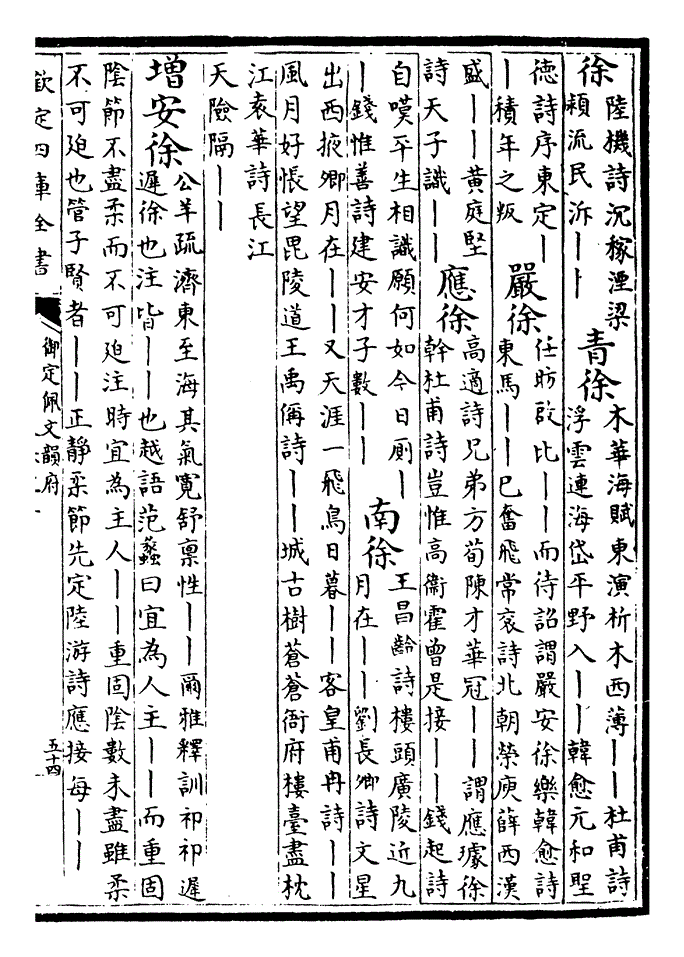 徐
陸機詩沉稼湮梁
穎流民泝丨丨
青徐
木華海賦東演析木西薄丨丨杜甫詩
浮雲連海岱平野入丨丨韓愈元和聖
德詩序東定丨
丨積年之叛
嚴徐
任昉啟比丨丨而待詔謂嚴安徐樂韓愈詩
東馬丨丨已奮飛常衮詩北朝榮庾薛西漢
盛丨丨黃庭堅
詩天子識丨丨
應徐
高適詩兄弟方荀陳才華冠丨丨謂應璩徐
幹杜甫詩豈惟高衛霍曾是接丨丨錢起詩
自嘆平生相識願何如今日廁丨
丨錢惟善詩建安才子數丨丨
南徐
王昌齡詩樓頭廣陵近九
月在丨丨劉長卿詩文星
出西掖卿月在丨丨又天涯一飛鳥日暮丨丨客皇甫冉詩丨丨
風月好悵望毘陵道王禹偁詩丨丨城古樹蒼蒼衙府樓臺盡枕
江袁華詩長江
天險隔丨丨
增安徐
公羊疏濟東至海其氣寬舒禀性丨丨爾雅釋訓祁祁遲
遲徐也注皆丨丨也越語范蠡曰宜為人主丨丨而重固
陰節不盡柔而不可廹注時宜為主人丨丨重固陰數未盡雖柔
不可廹也管子賢者丨丨正静柔節先定陸游詩應接每丨丨
欽定四庫全書
御定佩文韻府
五十四